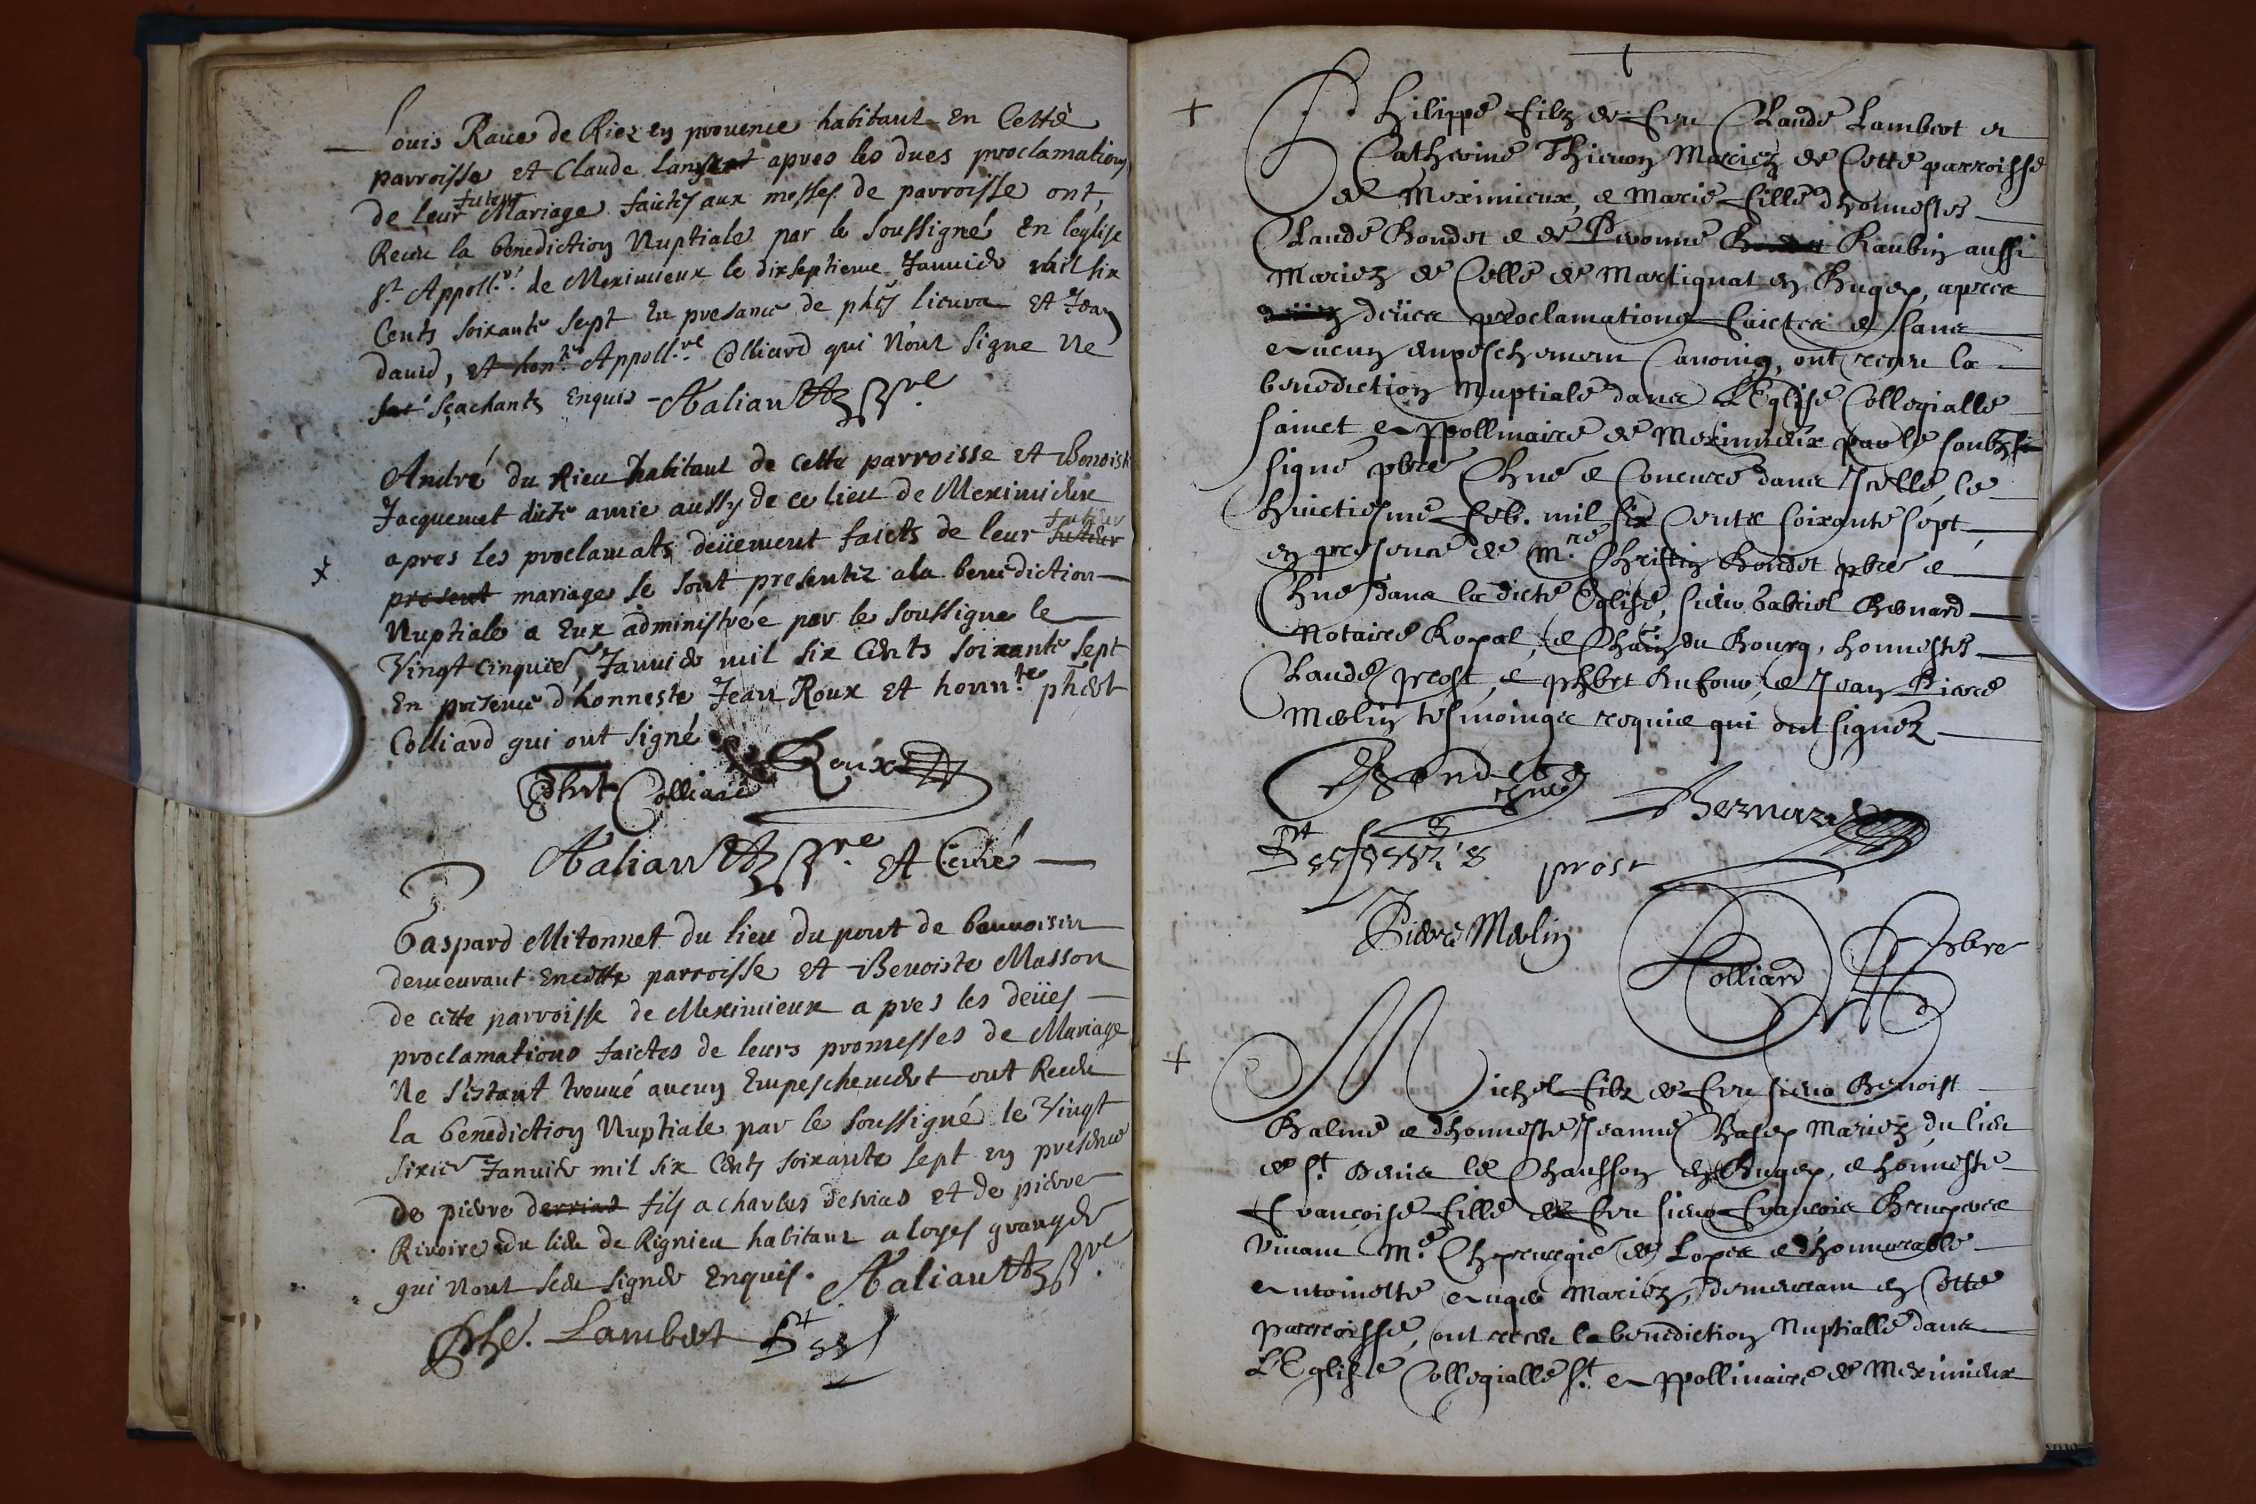 Louis Raue de Riez en prouence habitant En Cette
parroisse et Claude apres les dues proclamations
de leur futeur Mariage faictes aux messes de parroisse ont,
Receu la benediction Nuptiale par le soussigné En leglise
St Appoll.re de Meximieux le dixseptieme Januier mil six
Cents soixante sept En presance de et Jean
dauid, et hon.te Appoll.re Colliard qui n'ont signe ne
sçachants Enquis
André du Rieu habitant de cette parroisse et Benoiste
Jacquemet dicte amie aussy de ce lieu de Meximieux
apres les proclamats deüement faicts de leur futeur
present mariage se sont presentez a la benediction
Nuptiale a Eux administrée par le soussigne le
Vingt cinquie Januier mil six Cents soixante sept
En presence d'honneste Jean Roux et honn.te phbert
Colliard qui ont signé
Roux
Phbt Colliard
ptre et Curé
Gaspard Mitonnet du lieu du pont de bauuoisin
demeurant En cette parroisse et Benoiste Masson
de cette parroisse de Meximieux apres les deües
proclamations faictes de leurs promesses de Mariage
Ne s'estant trouué aucun Empeschement ont Receu
la benediction Nuptiale par le soussigné le Vingt
sixie Januier mil six Cents soixante sept en presence
de pierre derrias fils a charles desrias et de pierre
Riuoire du lieu de Rignieu habitant a loyes granger
qui n'ont sceu signer Enquis.
Phe. Lambert
Philippe filz de feu Claude Lambert et
Catherine Thieuon Mariez de Cette parroisse
de Meximieux, e Marie fille d'honnestes
Claude Bondet e de Pernonne Raubin aussi
Mariez de Celle de Martignat en Bugey, apres
deües proclamations faictes e sans
aucun enpeschement Canoniq, ont receu la
benediction Nuptiale dans L'Eglise Collegialle
sainct Appollinaire de Meximieux par le soubz
signé pbre Chne e Concuré dans Icelle, le
huictiesme feb. mil six Cents soixante sept,
en presence de M.re Christin Bondet pbre e
Chne dans la dicte Eglise, sieur Gabriel Bernard
Notaire Royal, e Chain du Bourg, honnestes
Claude prost, e phbert Bufour, e Jean Pierre
Merlin tesmoings requis qui ont signez
Bondet
chne
Bernard
prost
Pierre Merlin
Colliard pbre
Michel filz de feu sieur Benoist
Balme e d'honneste Jeanne Basey Mariez du lieu
de St Denis le Chausson en Bugey, e honneste
Françoise fille de feu sieur François Bruyeres
Viuant M.e Chyrurgie de Loyes e d'honnorable
Antoinette Mariez, demeurant en Cette
parroisse, ont receu la benediction Nuptialle dans
L'Eglise Collegialle St Appollinaire de Meximieux